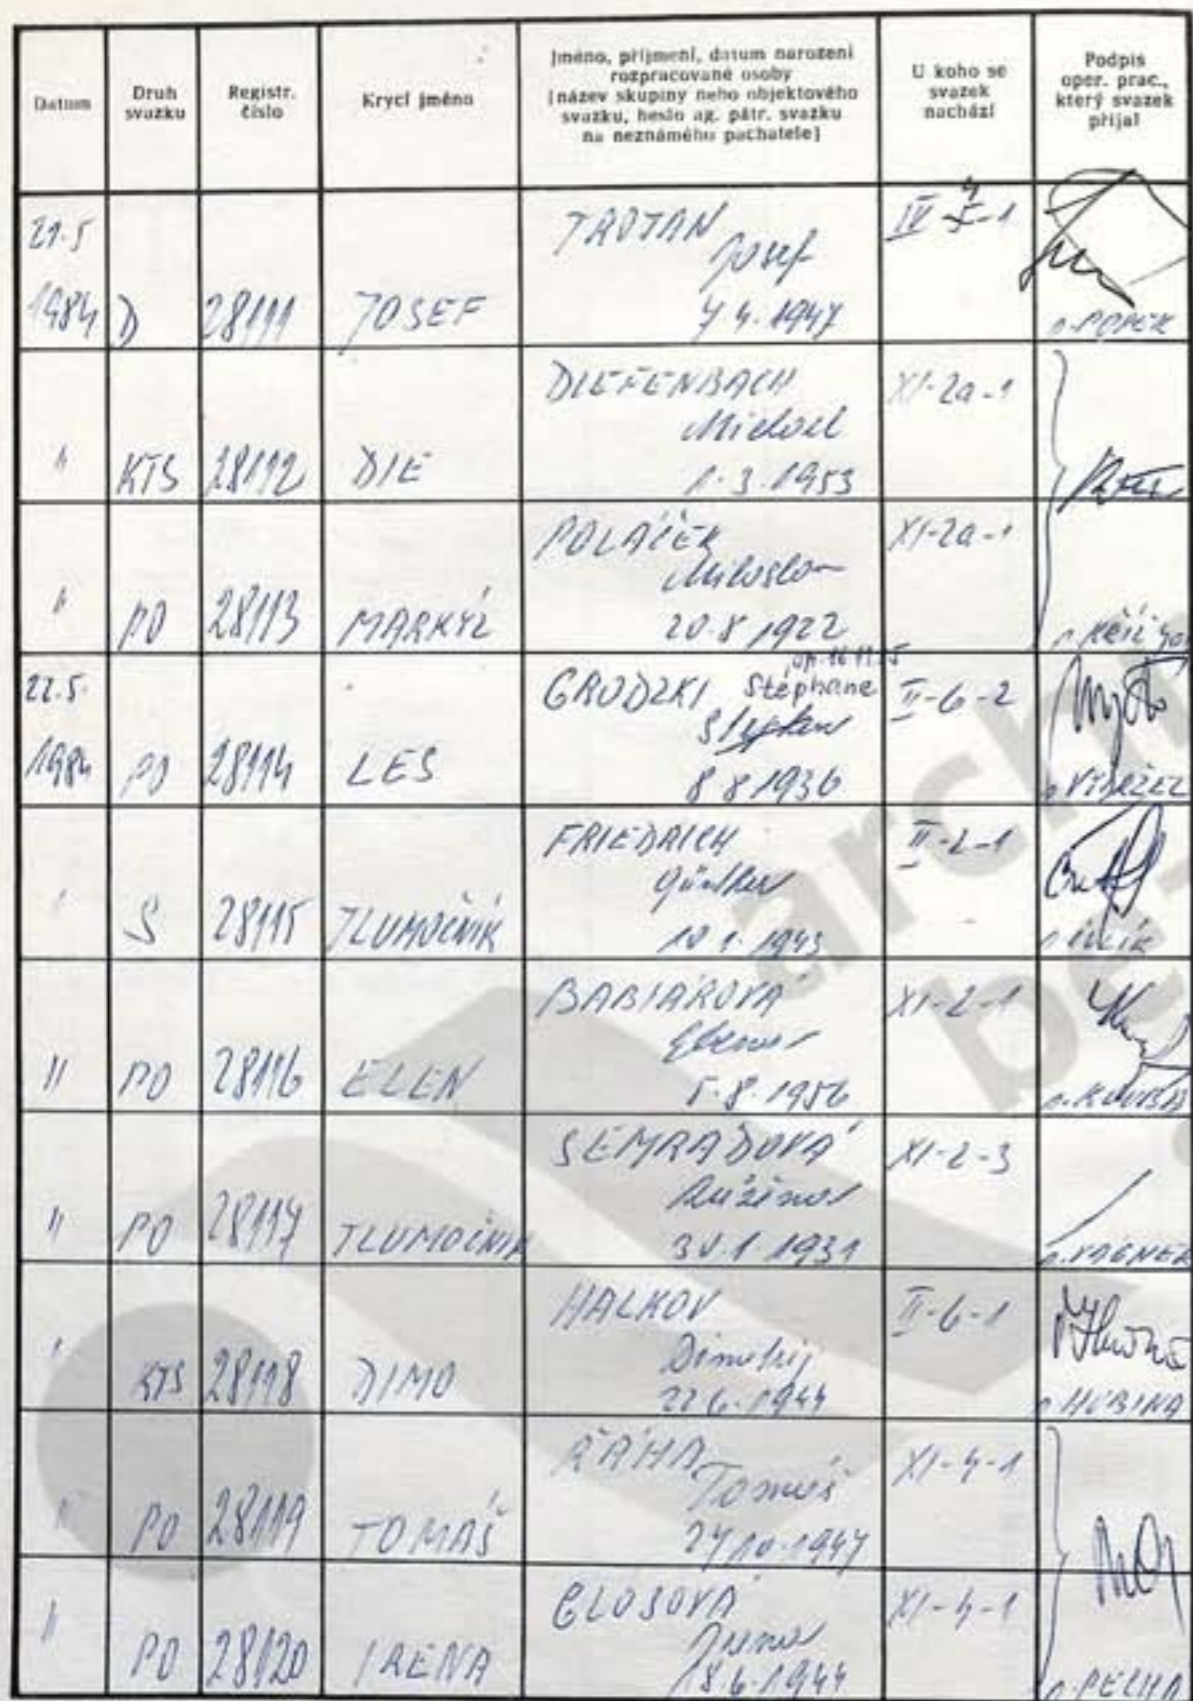 Datum
Druh
svazku
Registr.
číslo
Krycí jméno
Jméno, příjmení, datum narození
rozpracované osoby
(název skupiny nebo objektového
svazku, heslo ag. pátr. svazku
na neznámého pachatele)
U koho se
svazek
nachází
Podpis
oper. prac.,
který svazek
přijal
21.5
1984 D 28111 JOSEF
TROJAN
Josef
7 4. 1947
n. POPEK
" KTS 28112 DIE
DIEFENBACH
Michael
1.3.1953
XI-2a-1
" PO 28113 MARKÝZ
POLÁČEK
Miloslav
20.8 1922
XI-2a-1
22.5.
1984 PO 28114 LES
GRODZKI Stéphane
8 8 1936
II-6-2
" S 28115 TLUMOČNÍK
FRIEDRICH
Günther
10 1. 1943
II-2-1
" PO 28116 ELEN
BABIAROVÁ
5.8.1956
XI-2-1
" PO 28117 TLUMOČNIK
SEMRADOVÁ
Růžena
30.1 1931
XI-2-3
n. VAGNER
" KTS 28118 DIMO
HALKOV
Dimitrij
22 6.1944
II-6-1
n HUBINA
" PO 28119 TOMÁŠ
ŘÁHA
Tomáš
27 10.1947
XI-4-1
" PO 28120 IRENA
GLOSOVÁ
18.6.1944
XI-4-1
n. PECHA